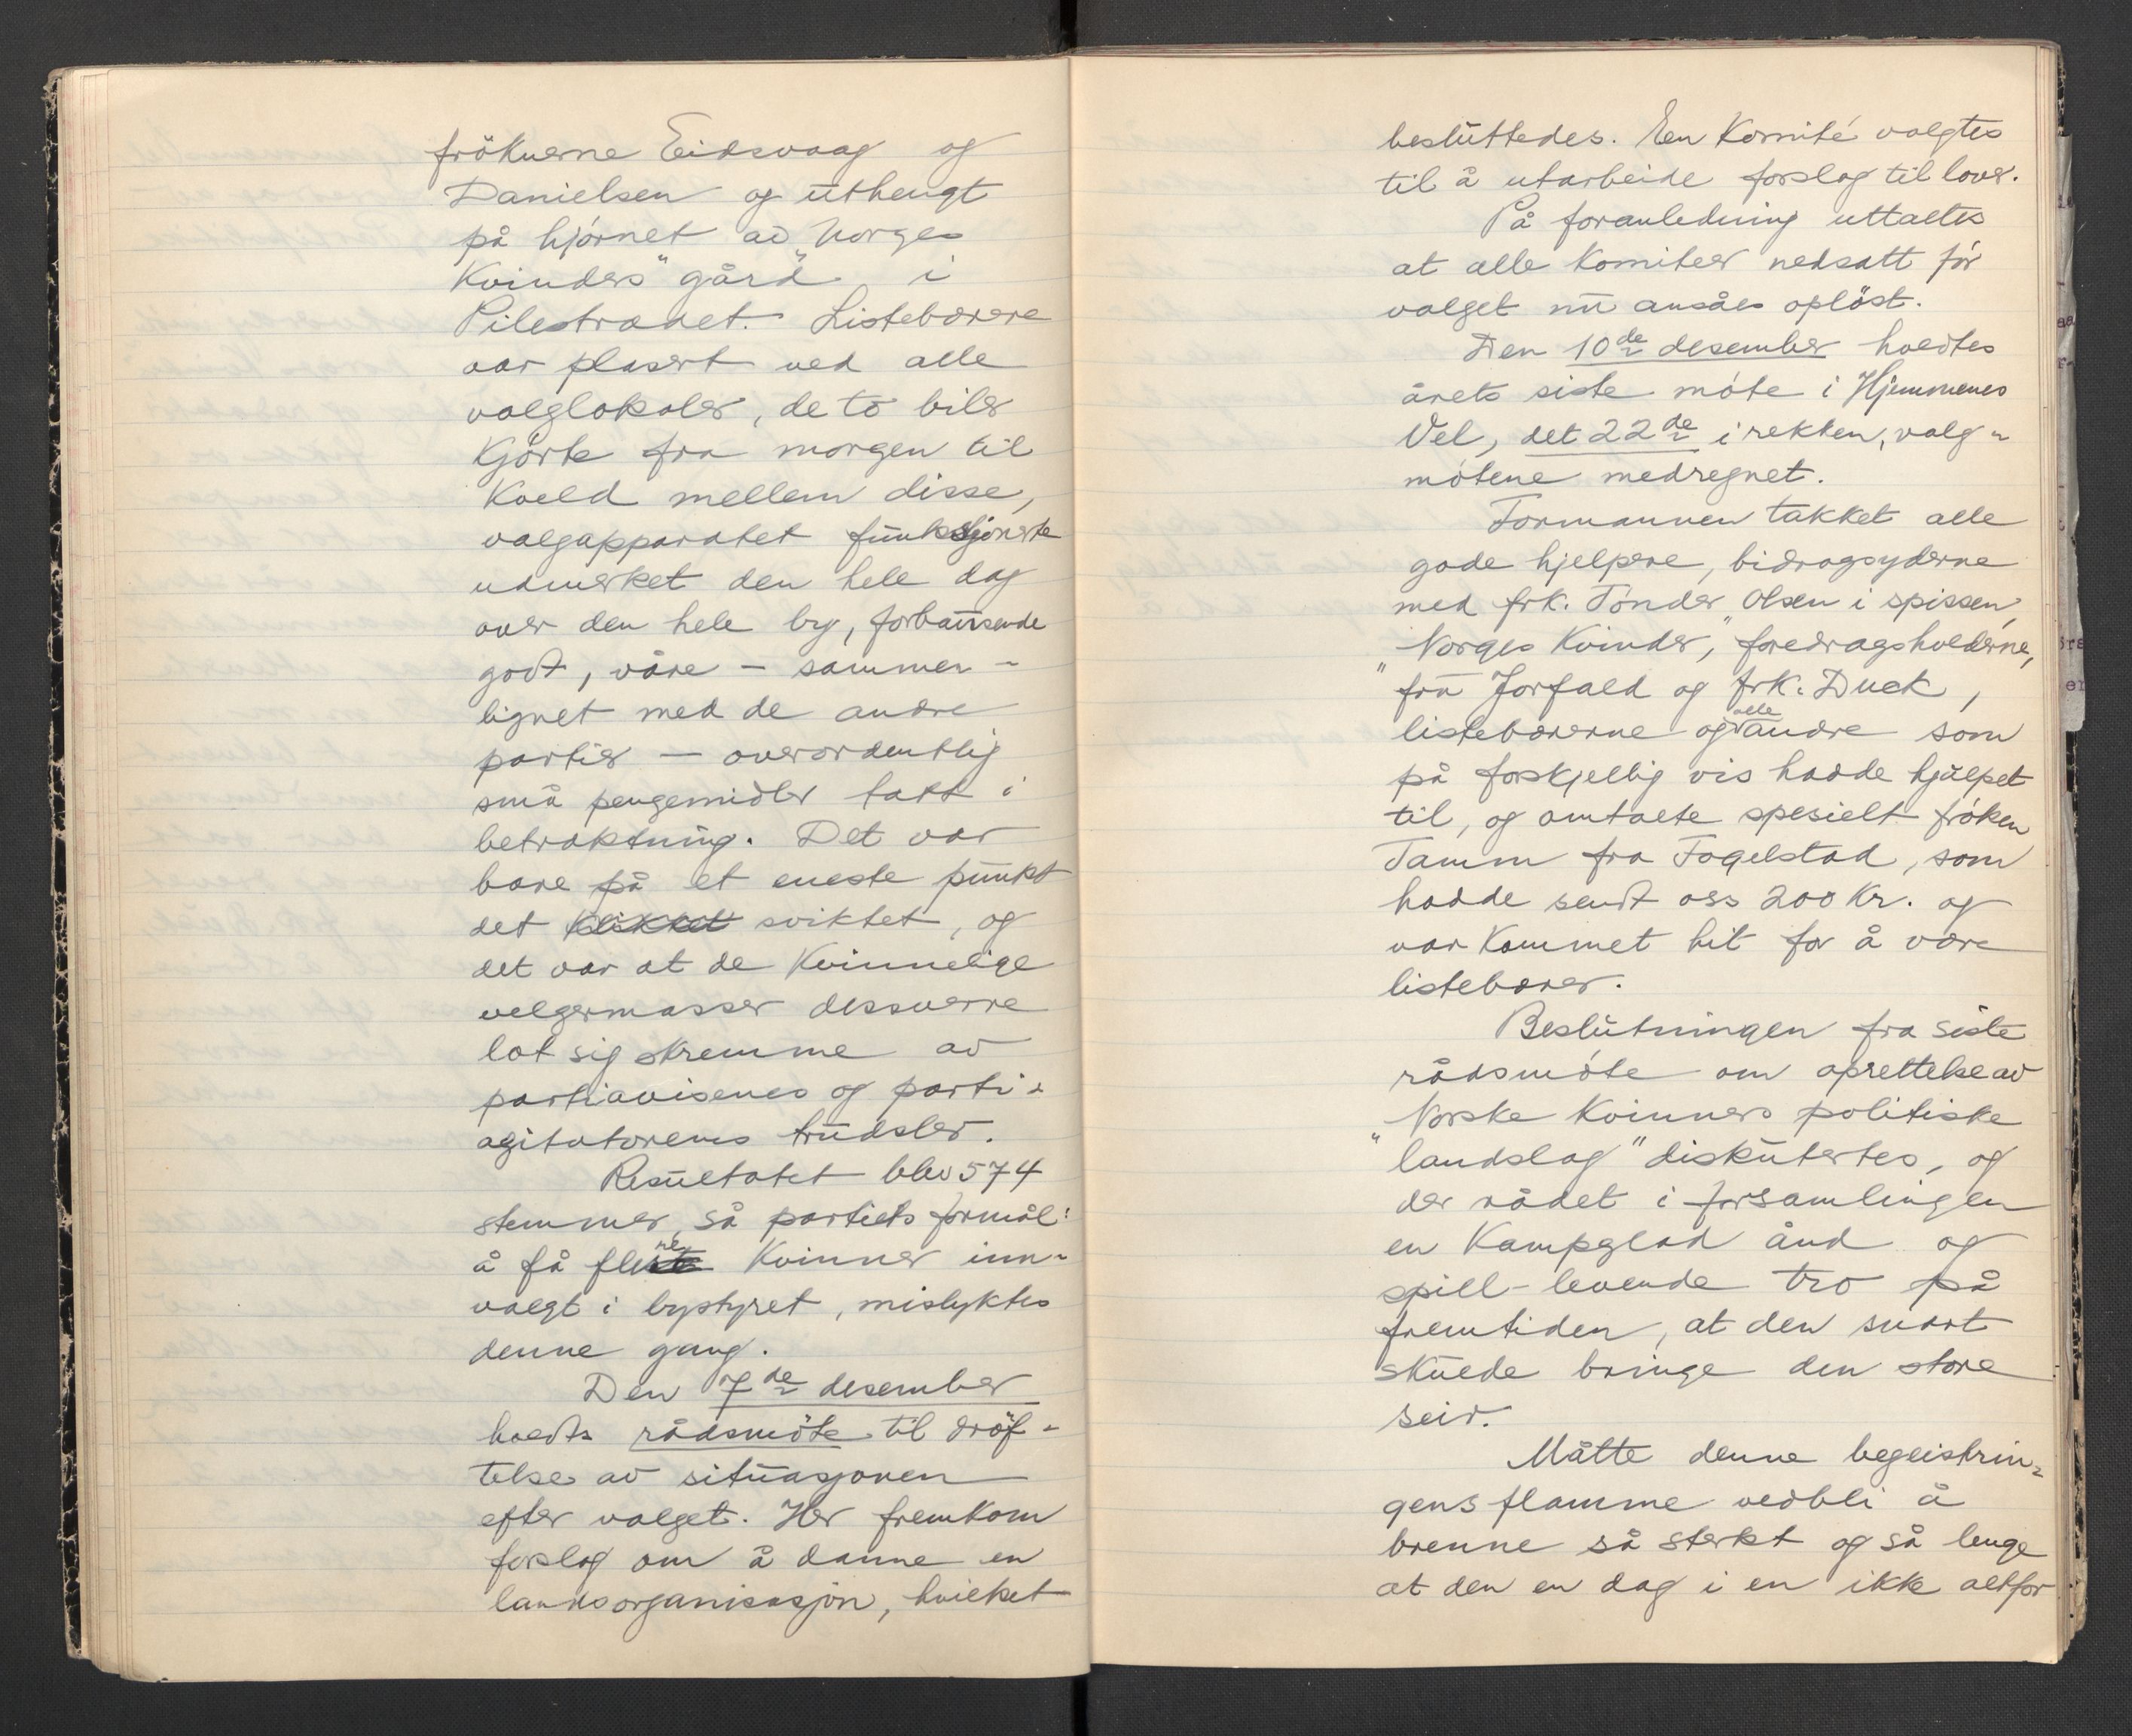 fröknerne Eidsvaag og
Danielsen og uthengt
på hjörnet av "Norges
Kvinders" gård i
Pilestrædet. Listebærere
var plasert ved alle
valglokaler, de to biler
Kjörte fra morgen til
Kveld mellem disse,
valgapparatet funksjonerte
udmerket den hele dag
over den hele by, forbausende
godt, våre – sammen-
lignet med de andre
partier – overordentlig
små pengemidler tatt i
betraktning. Det var
bare på et eneste punkt
det klikket sviktet, og
det var at de Kvinnelige
velgermasser dessverre
lot sig skremme av
partiavisenes og parti-
agitatorenes trudsler.
Resultatet blev 574
stemmer, så partiets formål:
å få flere Kvinner inn-
valgt i bystyret, mislyktes
denne gang.
Den 7de desember
holdts rådsmöte til dröf-
telse av situasjonen
efter valget. Her fremkom
forslag om å danne en
landsorganisasjon, hvilket
besluttedes. En Komité valgtes
til å utarbeide forslag til lover.
På foranledning uttaltes
at alle Komiteer nedsatt för
valget nu ansåes oplöst.
Den 10de desember holdtes
årets siste möte i Hjemmenes
Vel, det 22de i rekken, valg-
mötene medregnet.
Formannen takket alle
gode hjelpere, bidragsyderne
med frk. Tönder Olsen i spissen,
"Norges Kvinder," foredragsholderne,
fru Jorfald og frk. Duck,
listebærerne og alle andre som
på forskjellig vis hadde hjulpet
til, og omtalte spesielt fröken
Tamm fra Fogelstad, som
hadde sendt oss 200 Kr. og
var Kommet hit for å være
listebærer.
Beslutningen fra siste
rådsmöte om oprettelse av
"Norske Kvinners politiske
landslag" diskutertes, og
der rådet i forsamlingen
en Kampglad ånd og
spill-levende tro på
fremtiden, at den snart
skulde bringe den store
seir.
Måtte denne begeistrin-
gens flamme vedbli å
brenne så sterkt og så lenge
at den en dag i en ikke altfor